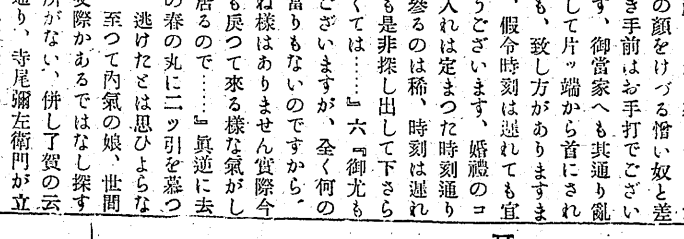 の顔をけづる憎い奴と差
き手前はお手打でござい
す、御當家へも其通り亂
して片ッ端から首にされ
も、致し方がありますま
、假令時刻は遲れても宜
うございます、婚禮のコ
入れは定まつた時刻通り
參るのは稀、時刻は遲れ
も是非探し出して下さら
くては……』六『御尤も
ございますが、全く何の
當りもないのですから、
ね様はありません實際今
も戻つて來る樣な氣がし
居るので……』眞逆に去
の春の丸に二ッ引を慕つ
逃けたとは思ひよらな
至つて內氣の娘、世間
交際かあるではなし探す
所がない、併し了賀の云
通り、寺尾彌左衛門が立